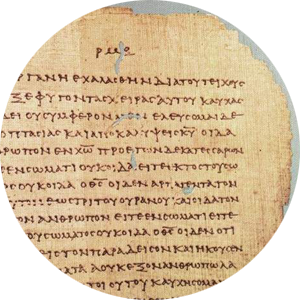 ΓΑΝΗ ΕΧΑΛΑΣΘΗΝ ΔΙΑ ΤΟΥ ΤΕΙΧΟΥΣ
ΞΕΦΥΓΟΝ ΤΑΣ ΧΕΙΡΑΣ ΑΥΤΟΥ ΚΑΥΧΑΣ
ΔΕΙ ΟΥ ΣΥΜΦΕΡΟΝ ΜΕΝ ΕΛΕΥΣΟΜΑΙ ΔΕ
ΟΠΤΑΣΙΑΣ ΚΑΙ ΑΠΟΚΑΛΥΨΕΙΣ Κ̅Υ̅ ΟΙΔΑ
ΘΡΩΠΟΝ ΕΝ Χ̅Ω̅ ΠΡΟ ΕΤΩΝ ΔΕΚΑΤΕΣΣΑΡΩΝ
ΕΝ ΣΩΜΑΤΙ ΟΥΚ ΟΙΔΑ ΕΙΤΕ ΕΚΤΟΣ ΤΟΥ ΣΩ
ΟΣ ΟΥΚ ΟΙΔΑ Ο Θ̅Σ̅ ΟΙΔΕΝ ΑΡΠΑΓΕΝΤΑ ΤΟΝ
ΥΤΟΝ ΕΩΣ ΤΡΙΤΟΥ ΟΥΡΑΝΟΥ ΚΑΙ ΟΙΔΑ ΤΟΝ
ΟΝ ΑΝΘΡΩΠΟΝ ΕΙΤΕ ΕΝ ΣΩΜΑΤΙ ΕΙΤΕ
ΤΟΥ ΣΩΜΑΤΟΣ ΟΥΚ ΟΙΔΑ Ο Θ̅Σ̅ ΟΙΔΕΝ ΟΤΙ
ΕΙΣ ΤΟΝ ΠΑΡΑΔΕΙΣΟΝ ΚΑΙ ΗΚΟΥΣΕΝ
ΑΤΑ Α ΟΥΚ ΕΞΟΝ ΑΝΘΡΩΠΩ ΛΑ
ΤΟΙΟΥΤΟΥ ΚΑΥΧΗΣΟΜΑΙ